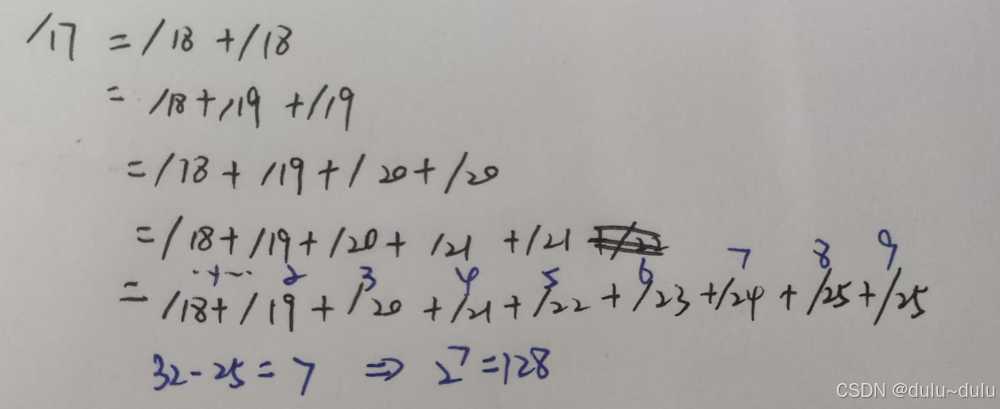 /17 = /18 + /18
= /18 + /19 + /19
= /18 + /19 + /20 + /20
= /18 + /19 + /20 + /21 + /21
1 2 3 4 5 6 7 8 9
= /18 + /19 + /20 + /21 + /22 + /23 + /24 + /25 + /25
32 - 25 = 7 ⇒ 2⁷ = 128
CSDN @dulu~dulu